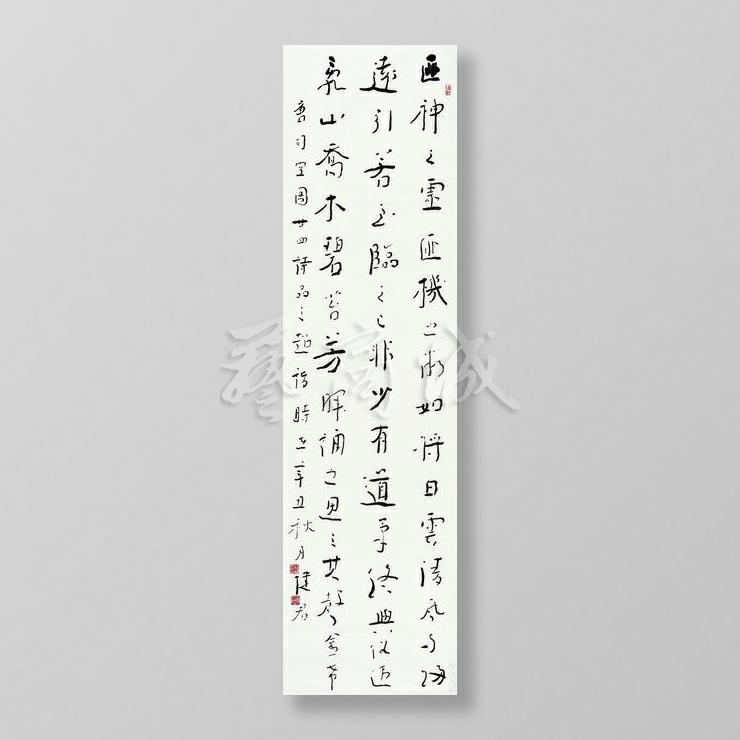 匪神之靈匪機之微如將白雲清風与歸
遠引若至臨之已非少有道契終與俗違
亂山喬木碧苔芳暉誦之思之其聲愈希
唐司空圖廿四詩品之超詣時在辛丑秋月
藝商城